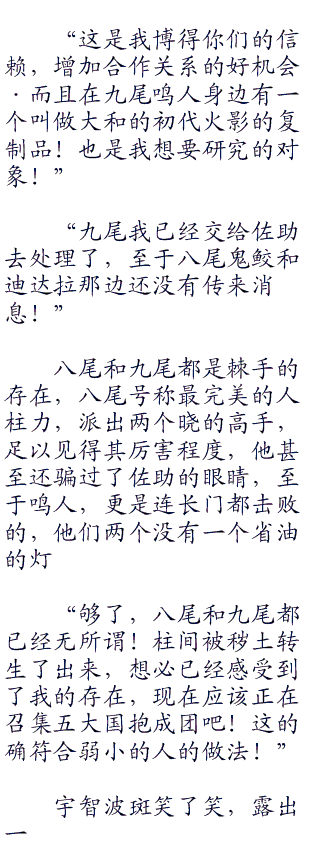 “这是我博得你们的信
赖，增加合作关系的好机会
·而且在九尾鸣人身边有一
个叫做大和的初代火影的复
制品！也是我想要研究的对
象！”
“九尾我已经交给佐助
去处理了，至于八尾鬼鲛和
迪达拉那边还没有传来消
息！”
八尾和九尾都是棘手的
存在，八尾号称最完美的人
柱力，派出两个晓的高手，
足以见得其厉害程度，他甚
至还骗过了佐助的眼睛，至
于鸣人，更是连长门都击败
的，他们两个没有一个省油
的灯
“够了，八尾和九尾都
已经无所谓！柱间被秽土转
生了出来，想必已经感受到
了我的存在，现在应该正在
召集五大国抱成团吧！这的
确符合弱小的人的做法！”
宇智波斑笑了笑，露出
一